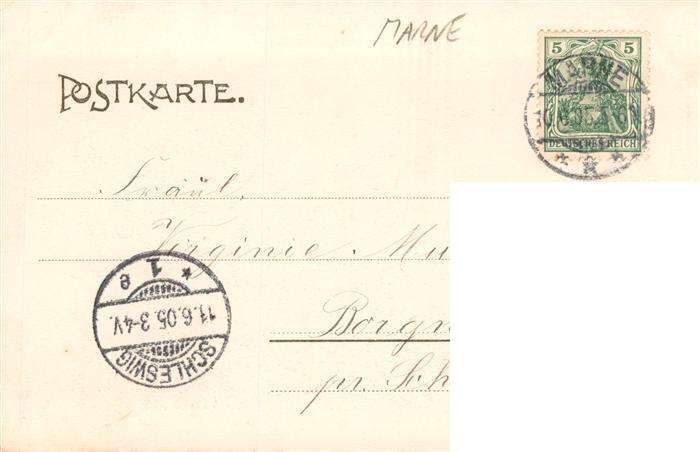 MARNE
POSTKARTE.
5 5
DEUTSCHES REICH
MARNE
Fräul.
Virginie Mu
Borgn
pr. Sch
SCHLESWIG
11.6.05.3-4V.
* 1 e